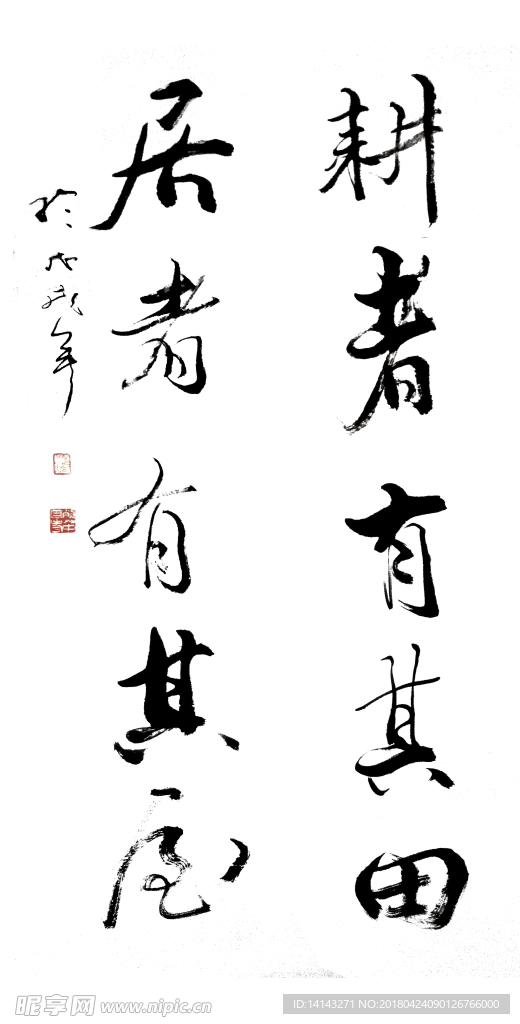 耕者有其田
居者有其屋
於戊戌年
昵享网 www.nipic.cn
ID:14143271 NO:20180424090126766000